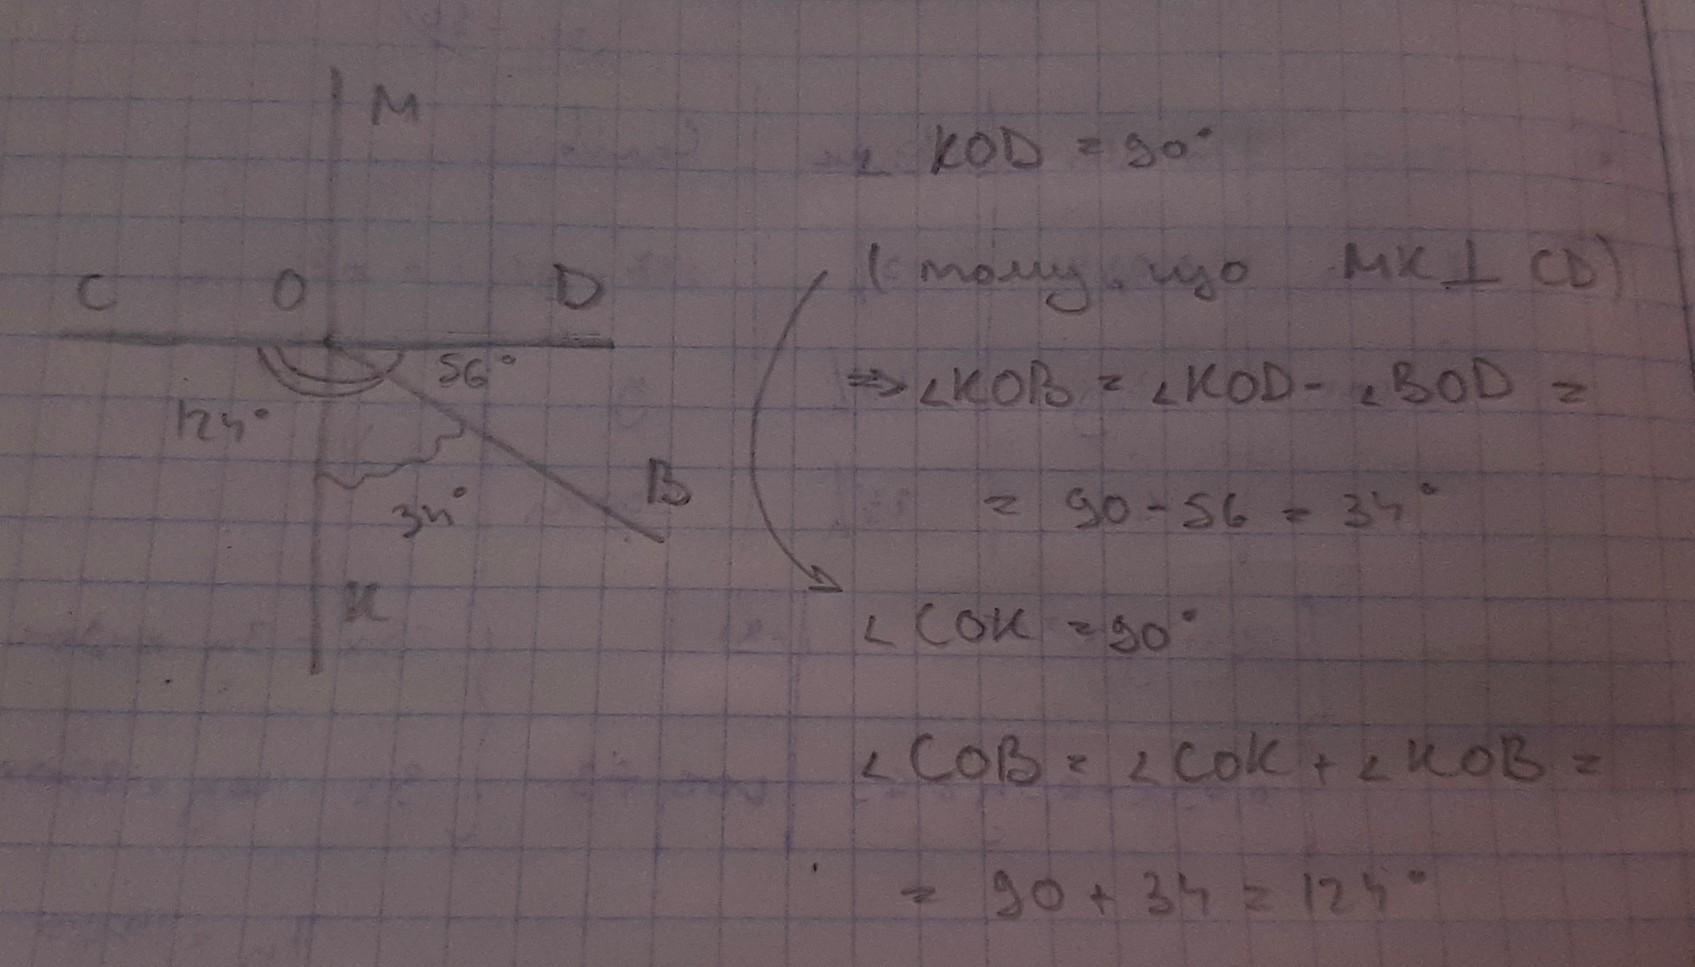 M
C O D
56°
124°
34°
B
K
∠ KOD = 90°
(тому, що MK ⊥ CD)
=> ∠KOB = ∠KOD - ∠BOD =
= 90 - 56 = 34°
∠ COK = 90°
∠ COB = ∠COK + ∠KOB =
= 90 + 34 = 124°